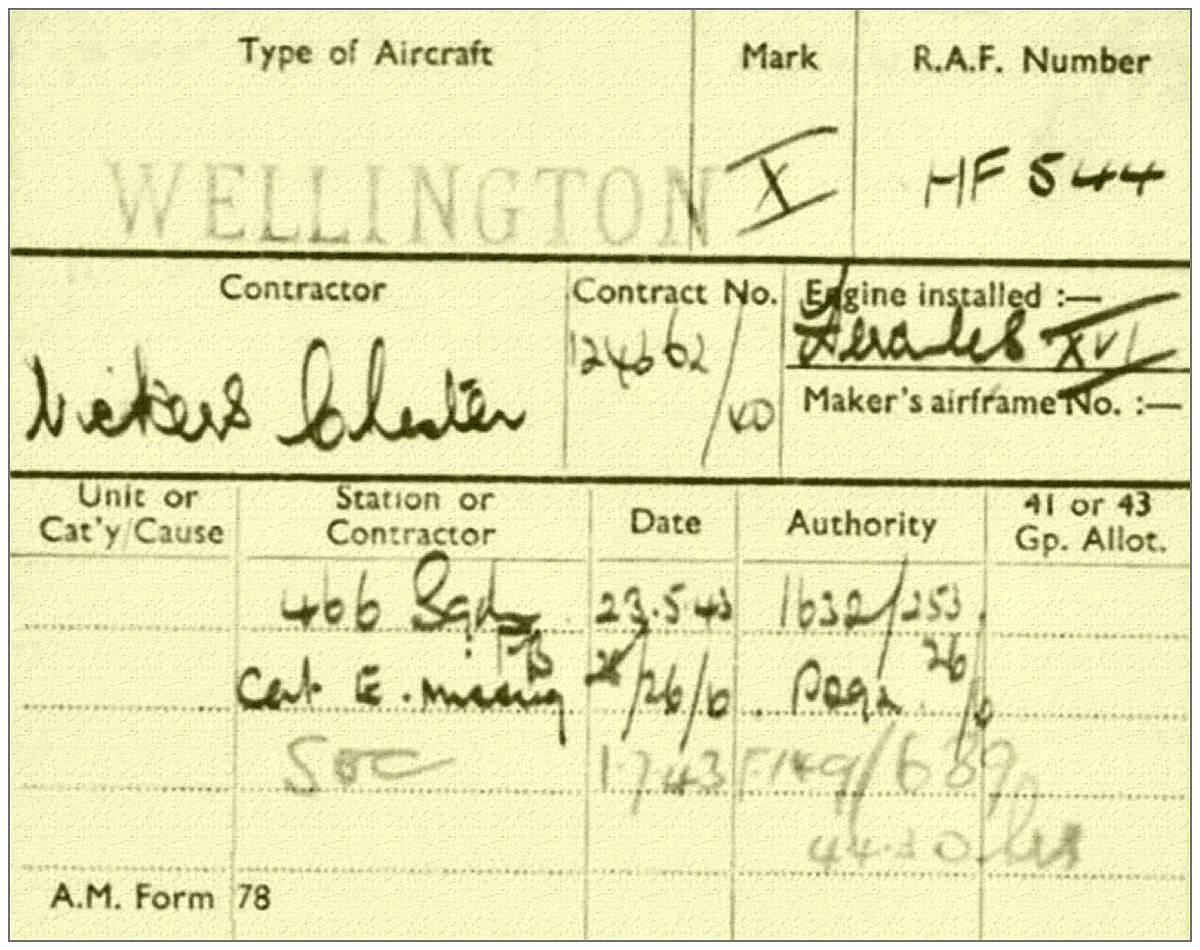 Type of Aircraft Mark R.A.F. Number
WELLINGTON X HF 544
Contractor Contract No. Engine installed :—
Vickers Chester 124662/ Hercules XVI
Maker's airframe No. :—
Unit or Cat'y/Cause Station or Contractor Date Authority 41 or 43 Gp. Allot.
466 Sqdn 23.5 43 1632/253.
FB
Cat E. missing /26/6 26/6
SOC 1.7 43 F.149/689
hrs
A.M. Form 78